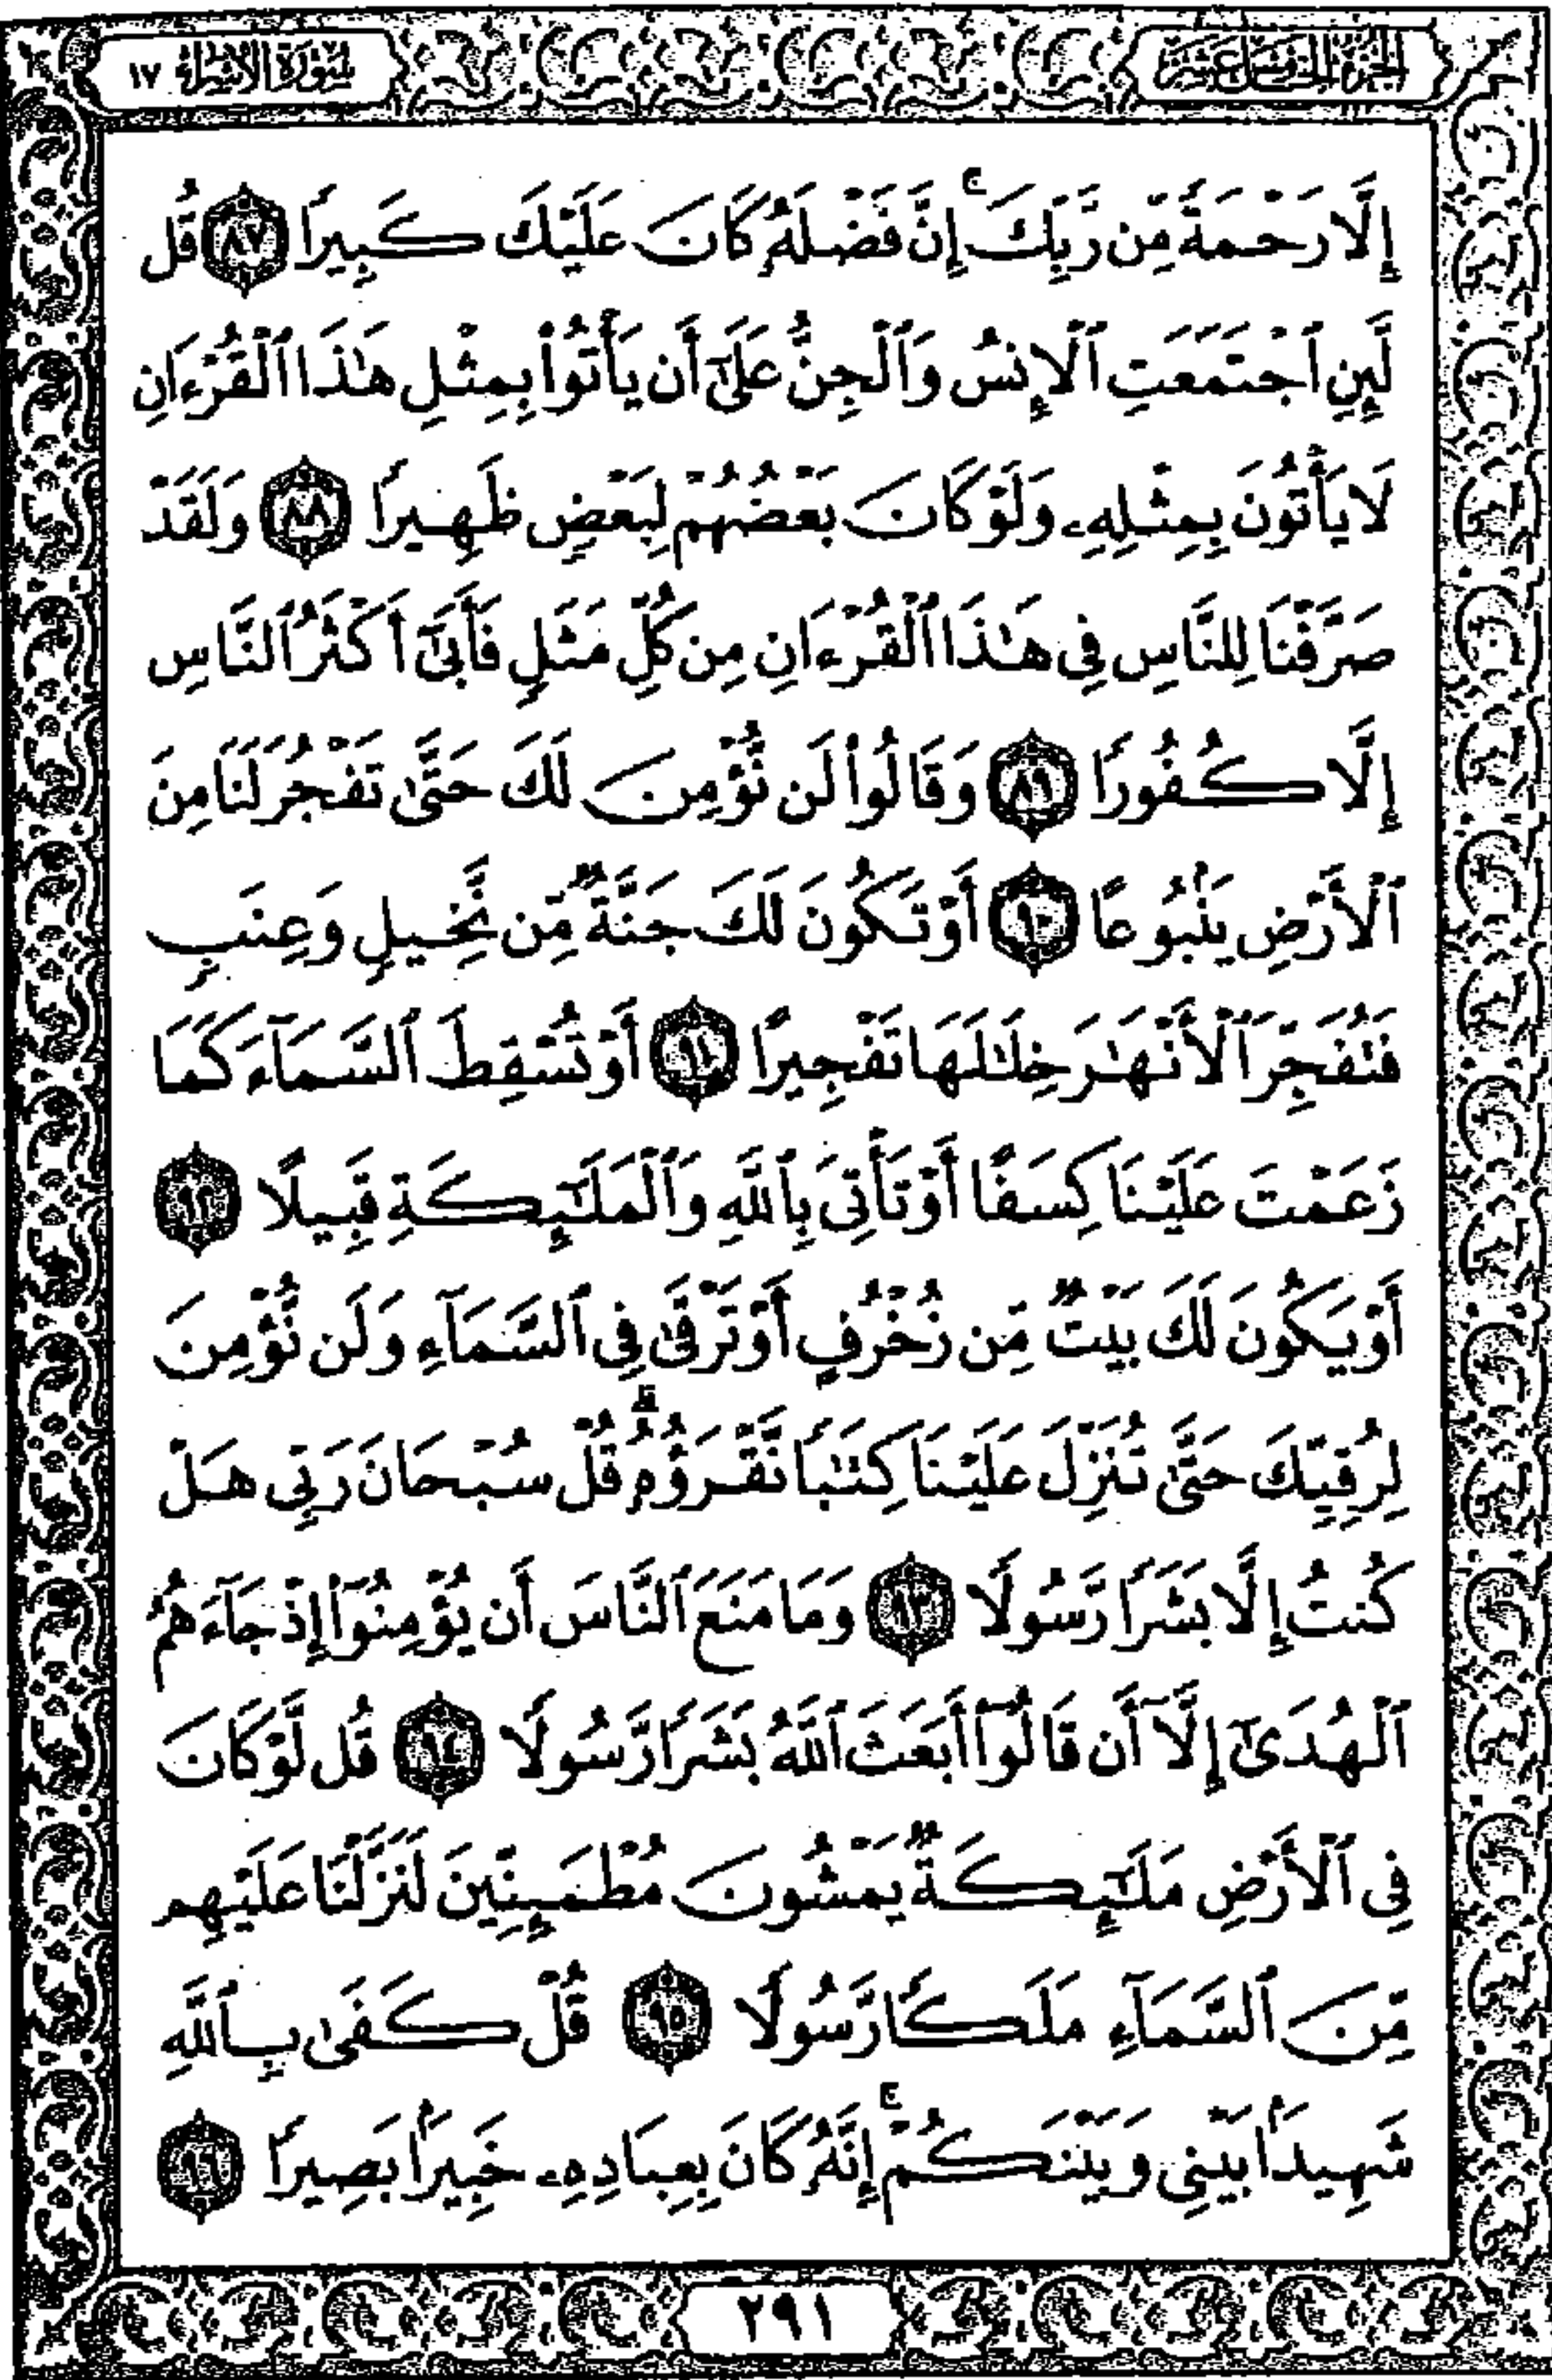 الجزء الخامس عشر
سورة الإسراء ١٧
إِلَّا رَحْمَةً مِّن رَّبِّكَ ۚ إِنَّ فَضْلَهُۥ كَانَ عَلَيْكَ كَبِيرًا ﴿٨٧﴾ قُل
لَّئِنِ ٱجْتَمَعَتِ ٱلْإِنسُ وَٱلْجِنُّ عَلَىٰٓ أَن يَأْتُوا۟ بِمِثْلِ هَٰذَا ٱلْقُرْءَانِ
لَا يَأْتُونَ بِمِثْلِهِۦ وَلَوْ كَانَ بَعْضُهُمْ لِبَعْضٍ ظَهِيرًا ﴿٨٨﴾ وَلَقَدْ
صَرَّفْنَا لِلنَّاسِ فِى هَٰذَا ٱلْقُرْءَانِ مِن كُلِّ مَثَلٍ فَأَبَىٰٓ أَكْثَرُ ٱلنَّاسِ
إِلَّا كُفُورًا ﴿٨٩﴾ وَقَالُوا۟ لَن نُّؤْمِنَ لَكَ حَتَّىٰ تَفْجُرَ لَنَا مِنَ
ٱلْأَرْضِ يَنۢبُوعًا ﴿٩٠﴾ أَوْ تَكُونَ لَكَ جَنَّةٌ مِّن نَّخِيلٍ وَعِنَبٍ
فَتُفَجِّرَ ٱلْأَنْهَٰرَ خِلَٰلَهَا تَفْجِيرًا ﴿٩١﴾ أَوْ تُسْقِطَ ٱلسَّمَآءَ كَمَا
زَعَمْتَ عَلَيْنَا كِسَفًا أَوْ تَأْتِىَ بِٱللَّهِ وَٱلْمَلَٰٓئِكَةِ قَبِيلًا ﴿٩٢﴾
أَوْ يَكُونَ لَكَ بَيْتٌ مِّن زُخْرُفٍ أَوْ تَرْقَىٰ فِى ٱلسَّمَآءِ وَلَن نُّؤْمِنَ
لِرُقِيِّكَ حَتَّىٰ تُنَزِّلَ عَلَيْنَا كِتَٰبًا نَّقْرَؤُهُۥ ۗ قُلْ سُبْحَانَ رَبِّى هَلْ
كُنتُ إِلَّا بَشَرًا رَّسُولًا ﴿٩٣﴾ وَمَا مَنَعَ ٱلنَّاسَ أَن يُؤْمِنُوٓا۟ إِذْ جَآءَهُمُ
ٱلْهُدَىٰٓ إِلَّآ أَن قَالُوٓا۟ أَبَعَثَ ٱللَّهُ بَشَرًا رَّسُولًا ﴿٩٤﴾ قُل لَّوْ كَانَ
فِى ٱلْأَرْضِ مَلَٰٓئِكَةٌ يَمْشُونَ مُطْمَئِنِّينَ لَنَزَّلْنَا عَلَيْهِم
مِّنَ ٱلسَّمَآءِ مَلَكًا رَّسُولًا ﴿٩٥﴾ قُلْ كَفَىٰ بِٱللَّهِ
شَهِيدًۢا بَيْنِى وَبَيْنَكُمْ ۚ إِنَّهُۥ كَانَ بِعِبَادِهِۦ خَبِيرًۢا بَصِيرًا ﴿٩٦﴾
٢٩١